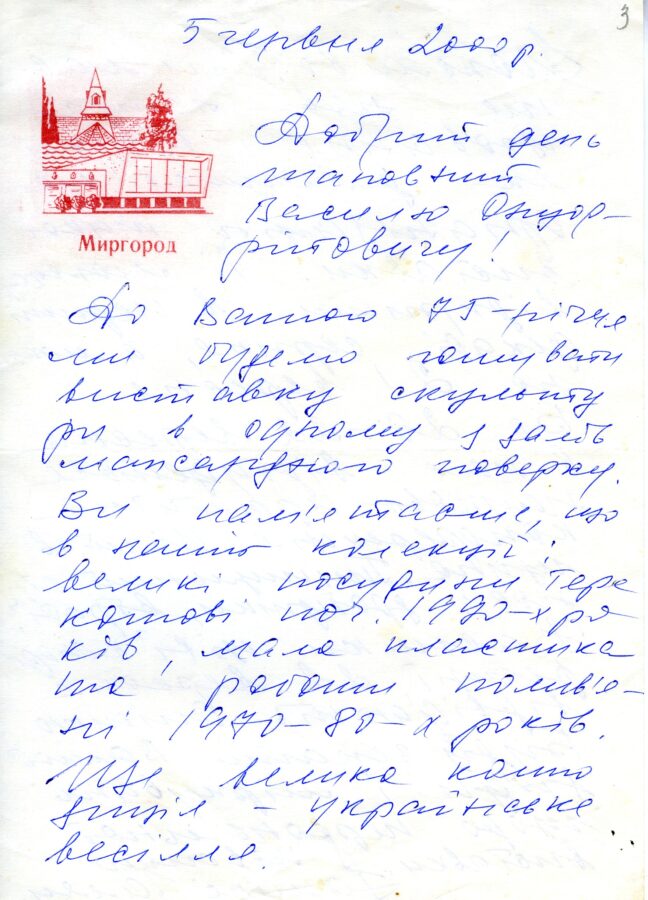 3
5 червня 2000 р.
Добрий день
шановний
Василю Онуф-
рійовичу!
Миргород
До Вашого 75-річчя
ми будемо готувати
виставку скульпту
ри в одному з залів
мансардного поверху.
Ви пам'ятаєте, що
в нашій колекції:
великі посудини тера
котові поч. 1990-х ро
ків, мала пластика
та роботи полив'я-
ні 1970-80-х років.
Ще велика компо
зиція – українське
весілля.